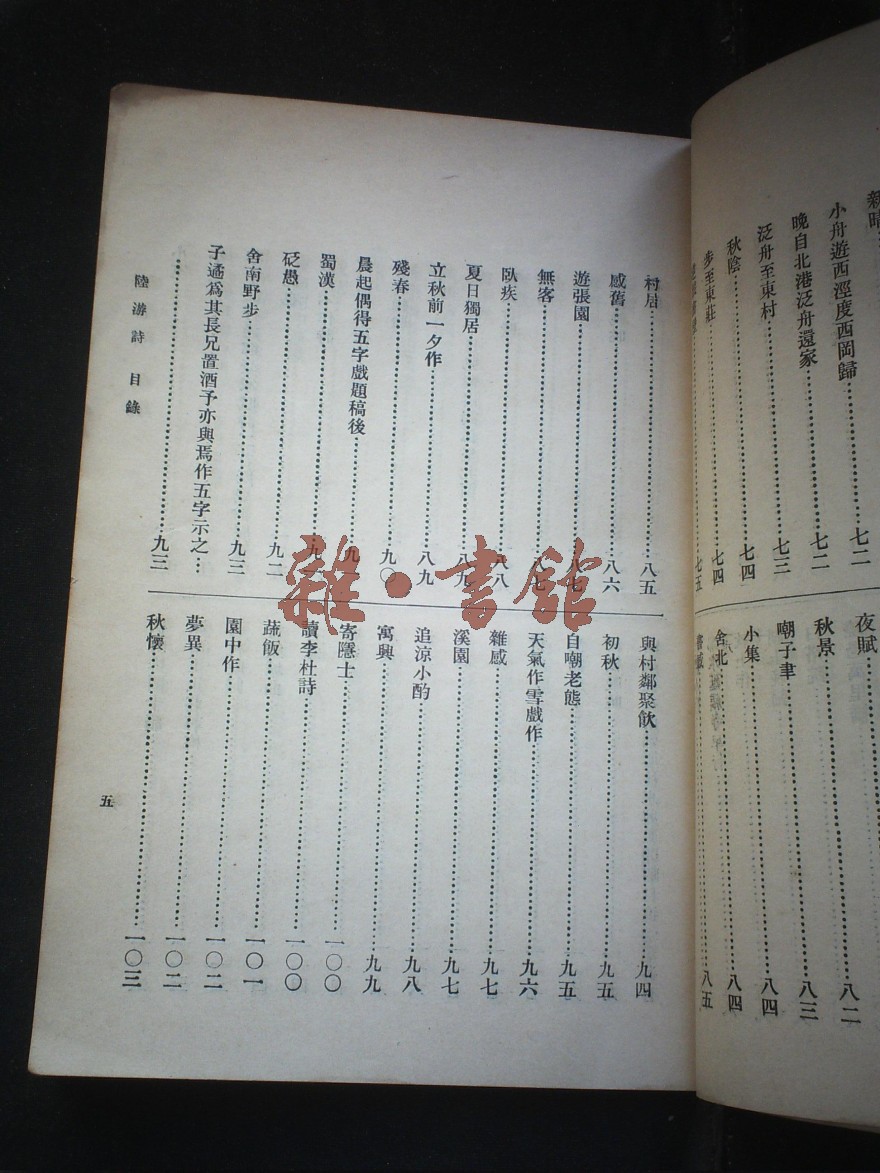 小舟遊西涇度西岡歸……七二
晚自北港泛舟還家……七二
泛舟至東村……七三
秋陰……七四
步至東莊……七四
七五
夜賦……八二
秋景……八三
嘲子聿……八四
小集……八四
舍北
八五
村居……八五
感舊……八六
遊張園……八七
無客……八七
臥疾……八八
夏日獨居……八九
立秋前一夕作……八九
殘春……九〇
晨起偶得五字戲題稿後……九
蜀漢……九
砭愚……九二
舍南野步……九三
子遹爲其長兄置酒予亦與焉作五字示之…九三
與村鄰聚飲……九四
初秋……九五
自嘲老態……九五
天氣作雪戲作……九六
雜感……九七
溪園……九七
追涼小酌……九八
寓興……九九
寄隱士……一〇〇
讀李杜詩……一〇〇
蔬飯……一〇一
園中作……一〇二
夢異……一〇二
秋懷……一〇三
陸游詩 目錄
五
雜·書館